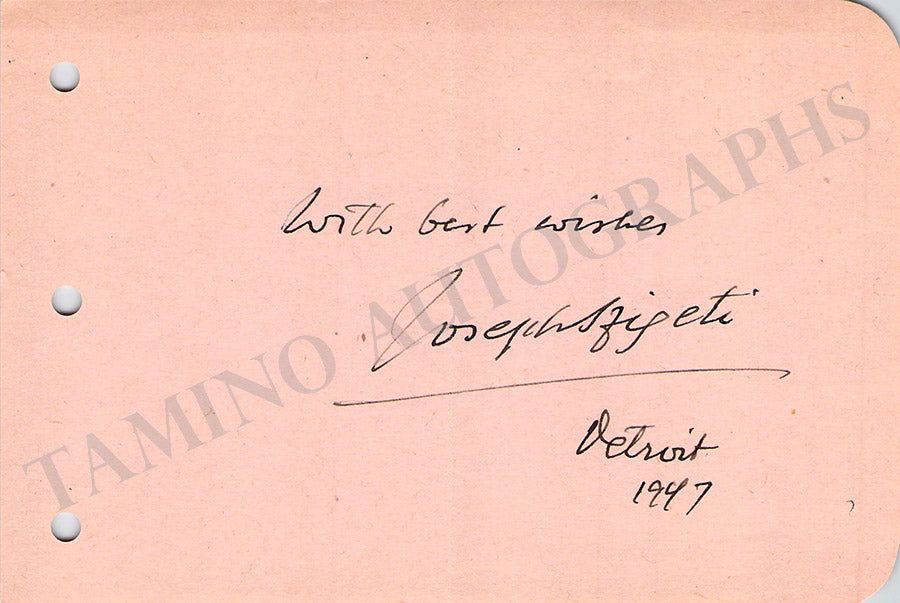 With best wishes
Joseph Szigeti
Detroit
1947
TAMINO AUTOGRAPHS